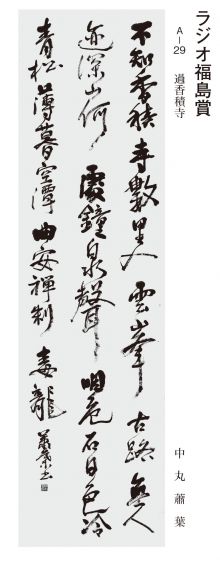 ラジオ福島賞
A-29 過香積寺
中丸蕭葉
不知香積寺數里入雲峯古路無人
逕深山何處鐘泉聲咽危石日色冷
青松薄暮空潭曲安禪制毒龍 蕭葉書